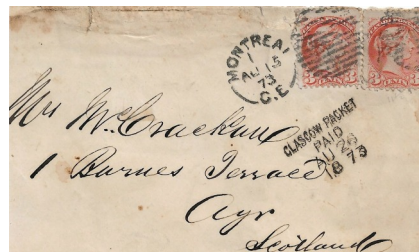 MONTREAL
1
AU 15
73
C.E
3 CENTS 3
3 CENTS
GLASGOW PACKET
PAID
AU 26
1873
Mrs McCrackan
1 Barnes Terrace
Ayr
Scotland